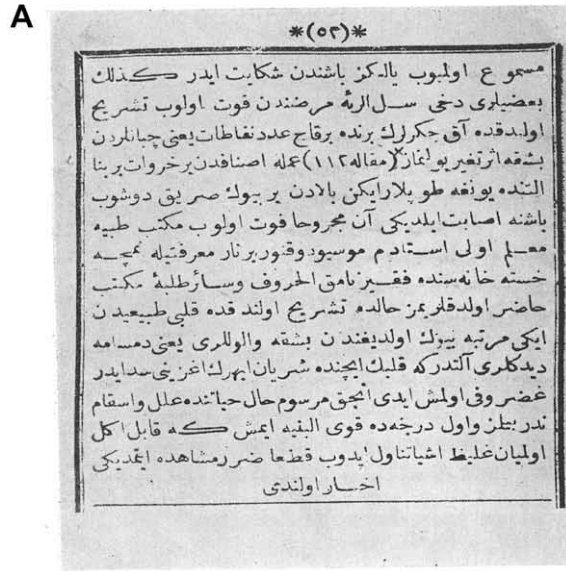 A
*(٥٢)*
مسموع اولميوب يالكز باشندن شكايت ايدر كذلك
بعضيلرى دخى سل الرئه مرضندن فوت اولوب تشريح
اولندقده آق جكرلرك برنده برقاج عدد نفاطات يعنى چبانلردن
بشقه اثر تغير بولنماز (مقاله ١١٢) عمله اصنافندن برخروات بر بنا
التنده يونغه طوپلارايكن بالادن بر بيوك صريق دوشوب
باشنه اصابت ايلديكى آن مجروحا فوت اولوب مكتب طبيه
معلم اولى استادم موسيو دوقتور برنار معرفتيله نمچه
خسته خانه سنده فقير نامق الحروف وسائر طلبۀ مكتب
حاضر اولدقلريمز حالده تشريح اولندقده قلبى طبيعيدن
ايكى مرتبه بيوك اولديغندن بشقه والوللرى يعنى دمسامه
ديدكلرى آلتدركه قلبك ايچنده شريان ابهرك اغزينى سد ايدر
غضروفى اولمش ايدى انجق مرسوم حال حياتنده علل واسقام
ندر بيلمز واول درجه ده قوى البنيه ايمش كه قابل اكل
اولميان غليظ اشيا تناول ايدوب قطعا ضرر مشاهده ايتمديكى
اخبار اولندى